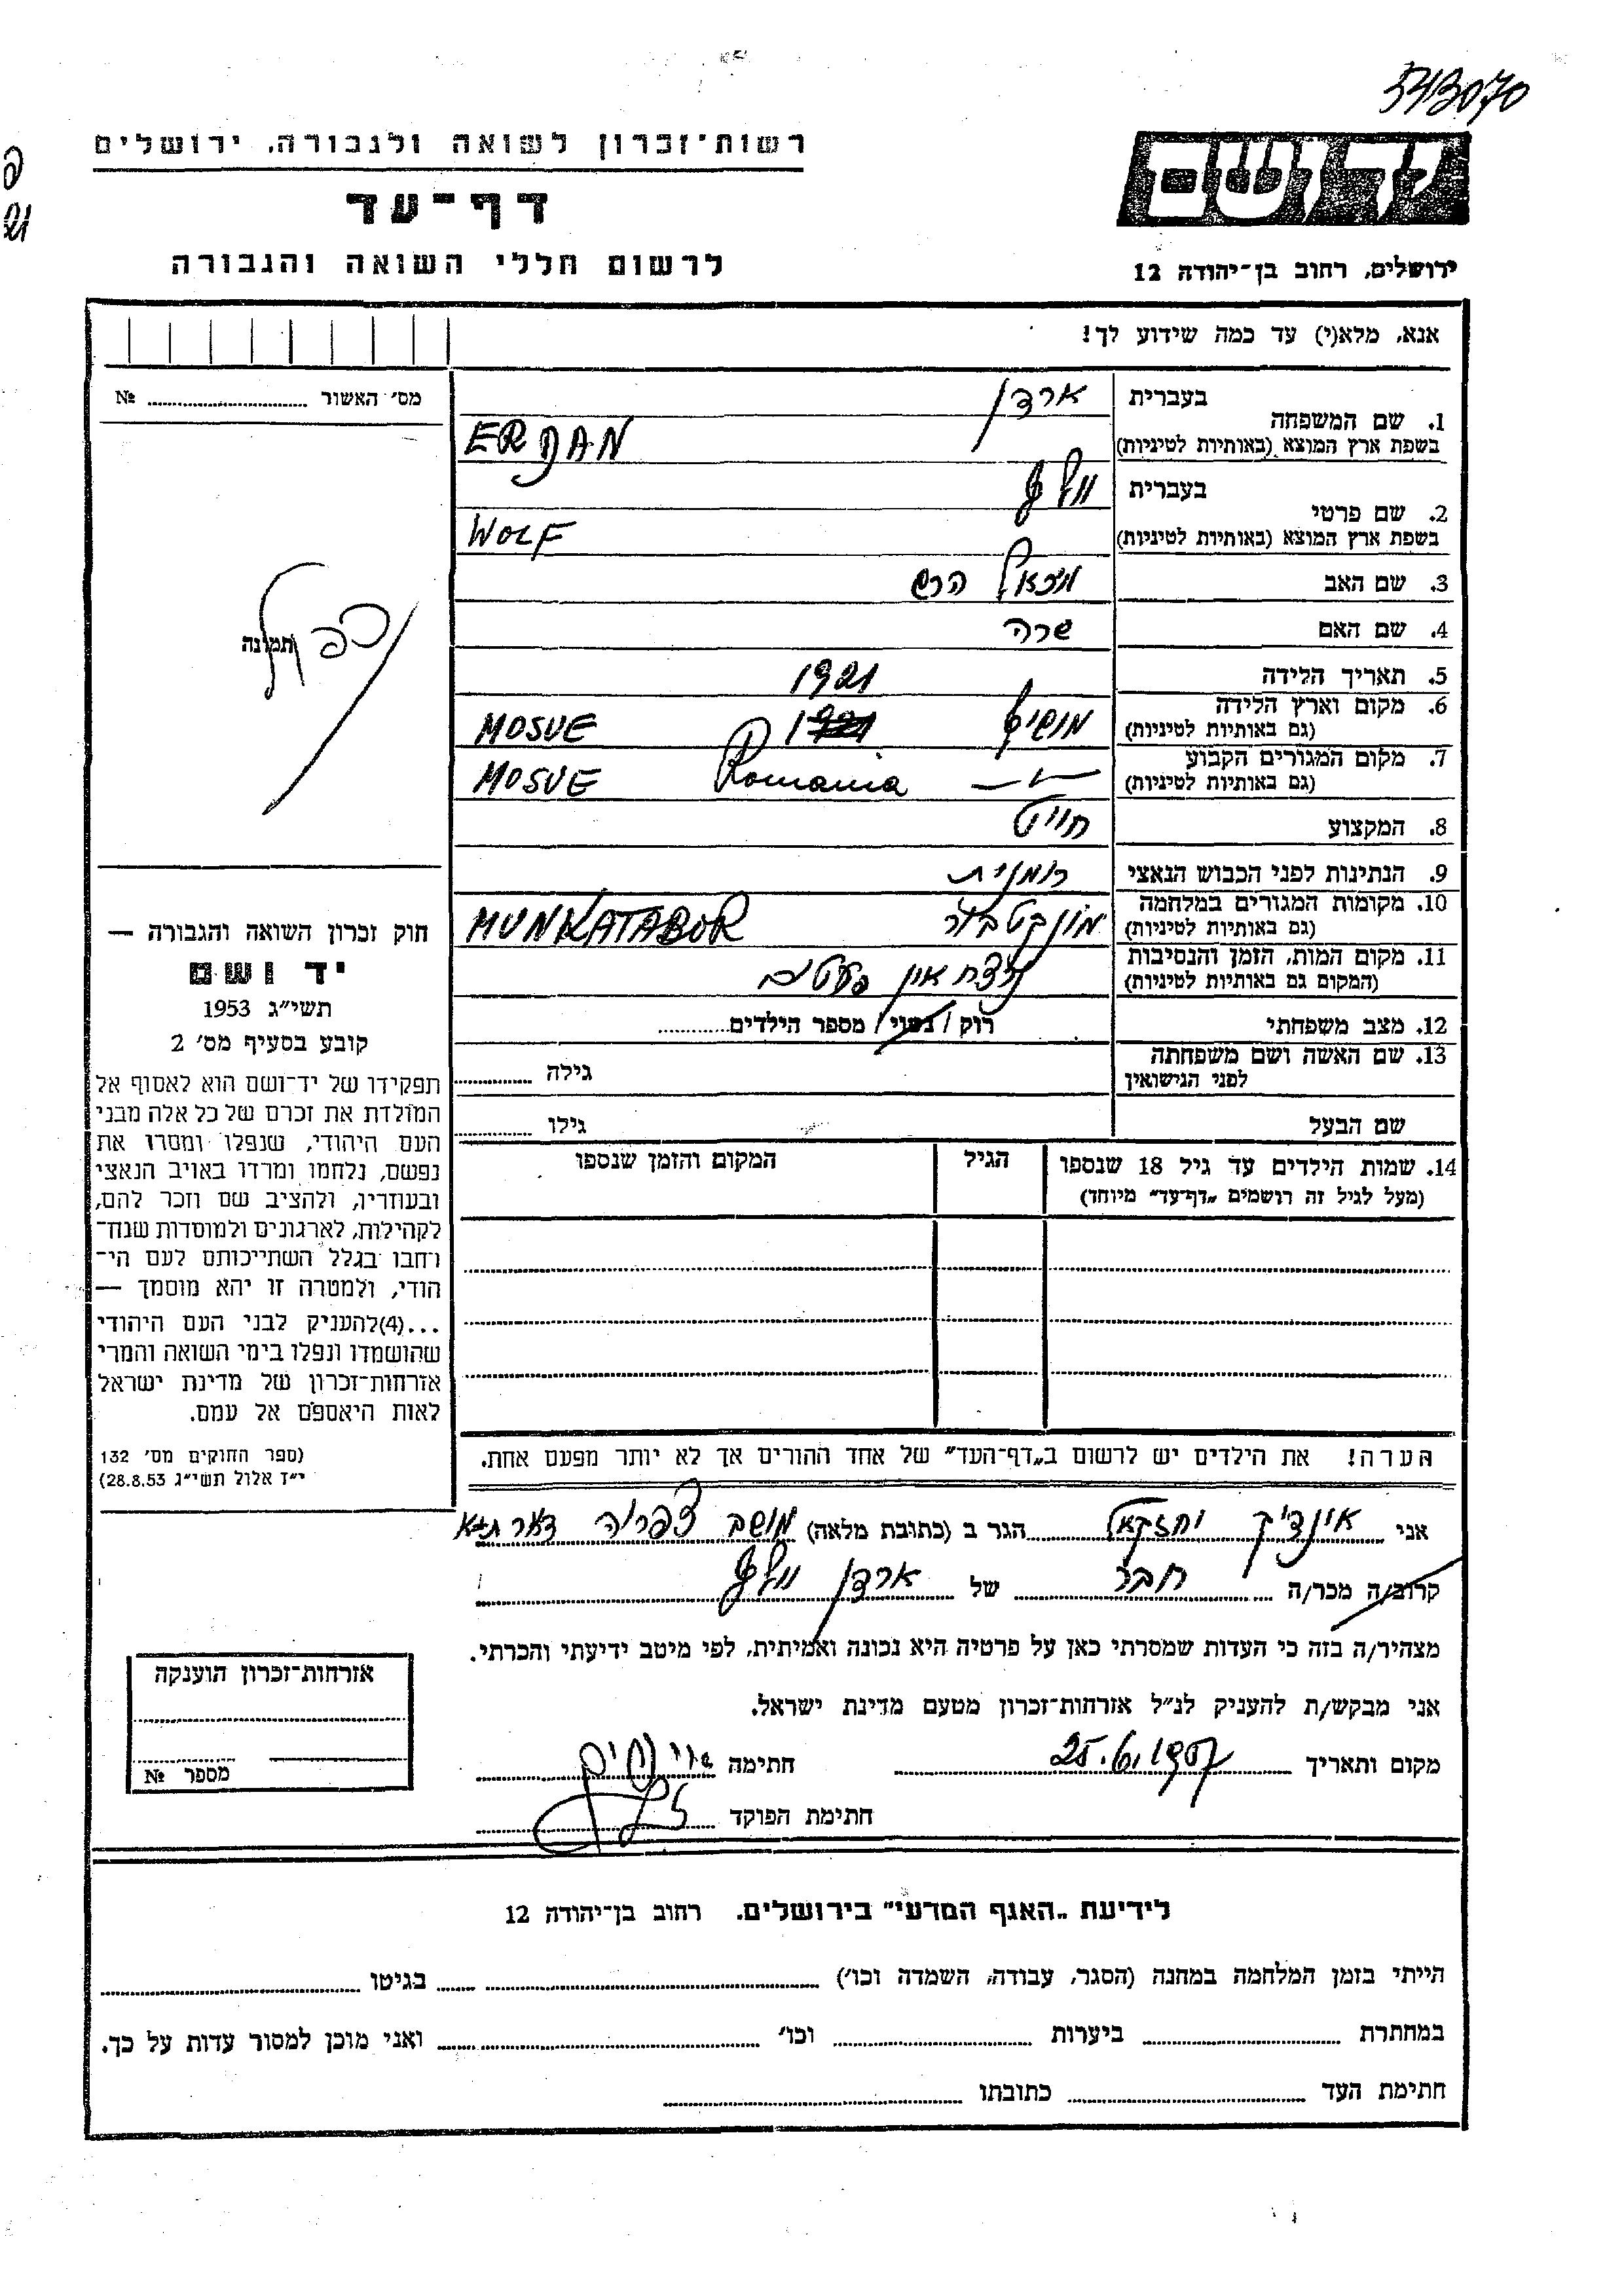 543070
יד ושם
רשות־זכרון לשואה ולגבורה. ירושלים
דף־עד
לרשום חללי השואה והגבורה
ירושלים, רחוב בן־יהודה 12
אנא, מלא(י) עד כמה שידוע לך!
מס׳ האשור № ........
תמונה
כפול
1. שם המשפחה
בעברית ארדן
בשפת ארץ המוצא (באותיות לטיניות) ERDAN
2. שם פרטי
בעברית וולף
בשפת ארץ המוצא (באותיות לטיניות) WOLF
3. שם האב הרש
4. שם האם שרה
5. תאריך הלידה 1921
6. מקום וארץ הלידה
(גם באותיות לטיניות) מושיף 1921 MOSUE
7. מקום המגורים הקבוע
(גם באותיות לטיניות) Romania MOSUE
8. המקצוע חייט
9. הנתינות לפני הכבוש הנאצי רומנית
10. מקומות המגורים במלחמה
(גם באותיות לטיניות) מונקטבור MUNKATABOR
11. מקום המות, הזמן והנסיבות
(המקום גם באותיות לטיניות)
12. מצב משפחתי רוק / נשוי / מספר הילדים........
13. שם האשה ושם משפחתה
לפני הנישואין גילה ........
שם הבעל גילו ........
14. שמות הילדים עד גיל 18 שנספו
(מעל לגיל זה רושמים „דף־עד״ מיוחד)
הגיל
המקום והזמן שנספו
חוק זכרון השואה והגבורה —
יד ושם
תשי״ג 1953
קובע בסעיף מס׳ 2
תפקידו של יד־ושם הוא לאסוף אל
המולדת את זכרם של כל אלה מבני
העם היהודי, שנפלו ומסרו את
נפשם, נלחמו ומרדו באויב הנאצי
ובעוזריו, ולהציב שם וזכר להם,
לקהילות, לארגונים ולמוסדות שנח־
רחבו בגלל השתייכותם לעם הי־
הודי, ולמטרה זו יהא מוסמך —
...(4)להעניק לבני העם היהודי
שהושמדו ונפלו בימי השואה והמרי
אזרחות־זכרון של מדינת ישראל
לאות היאספם אל עמם.
(ספר החוקים מס׳ 132
י״ד אלול תשי״ג 28.8.53)
הערה! את הילדים יש לרשום ב„דף־העד״ של אחד ההורים אך לא יותר מפעם אחת.
אני יחזקאל הגר ב (כתובת מלאה) מושב צפריה
קרוב/ה מכר/ה חבר של ארדן וולף
מצהיר/ה בזה כי העדות שמסרתי כאן על פרטיה היא נכונה ואמיתית, לפי מיטב ידיעתי והכרתי.
אני מבקש/ת להעניק לנ״ל אזרחות־זכרון מטעם מדינת ישראל.
מקום ותאריך 25.6.1957 חתימה
חתימת הפוקד
אזרחות־זכרון הוענקה
מספר №
לידיעת „האגף המדעי״ בירושלים. רחוב בן־יהודה 12
הייתי בזמן המלחמה במחנה (הסגר, עבודה, השמדה וכו׳) ........ בגיטו ........
במחתרת ........ ביערות ........ וכו׳ ........ ואני מוכן למסור עדות על כך.
חתימת העד ........ כתובתו ........